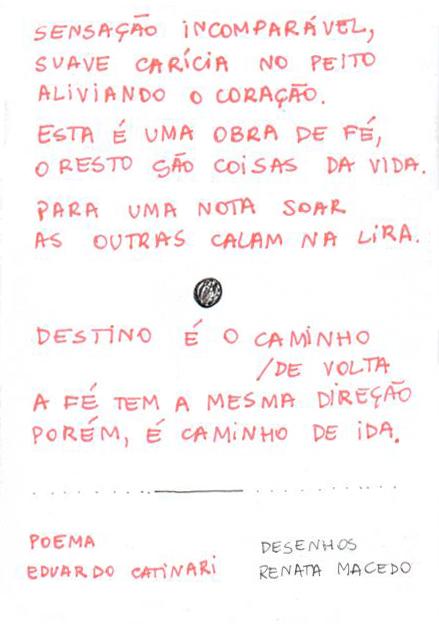 SENSAÇÃO INCOMPARÁVEL,
SUAVE CARÍCIA NO PEITO
ALIVIANDO O CORAÇÃO.
ESTA É UMA OBRA DE FÉ,
O RESTO SÃO COISAS DA VIDA.
PARA UMA NOTA SOAR
AS OUTRAS CALAM NA LIRA.
DESTINO É O CAMINHO
/DE VOLTA
A FÉ TEM A MESMA DIREÇÃO
PORÉM, É CAMINHO DE IDA.
POEMA
EDUARDO CATINARI
DESENHOS
RENATA MACEDO